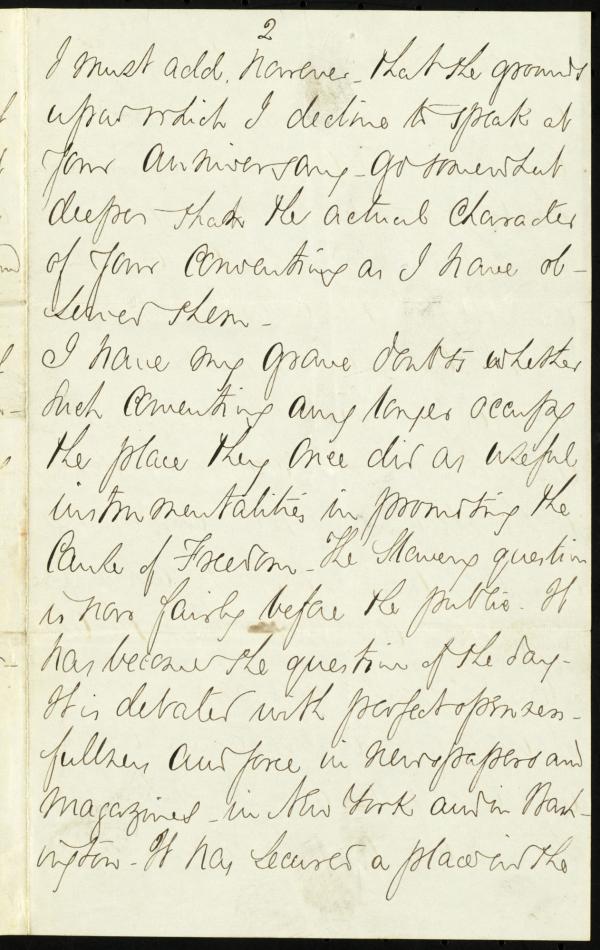 2
I must add, however - that the grounds
upon which I decline to speak at
your anniversary - go somewhat
deeper than the actual character
of your conventions as I have ob-
served them -
I have my grave doubts whether
such conventions any longer occupy
the place they once did as useful
instrumentalities in promoting the
Cause of Freedom - The Slavery question
is now fairly before the public. It
has become the question of the day -
It is debated with perfect openness -
fullness and force in newspapers and
magazines - in New York and in Wash-
ington - It has secured a place in the